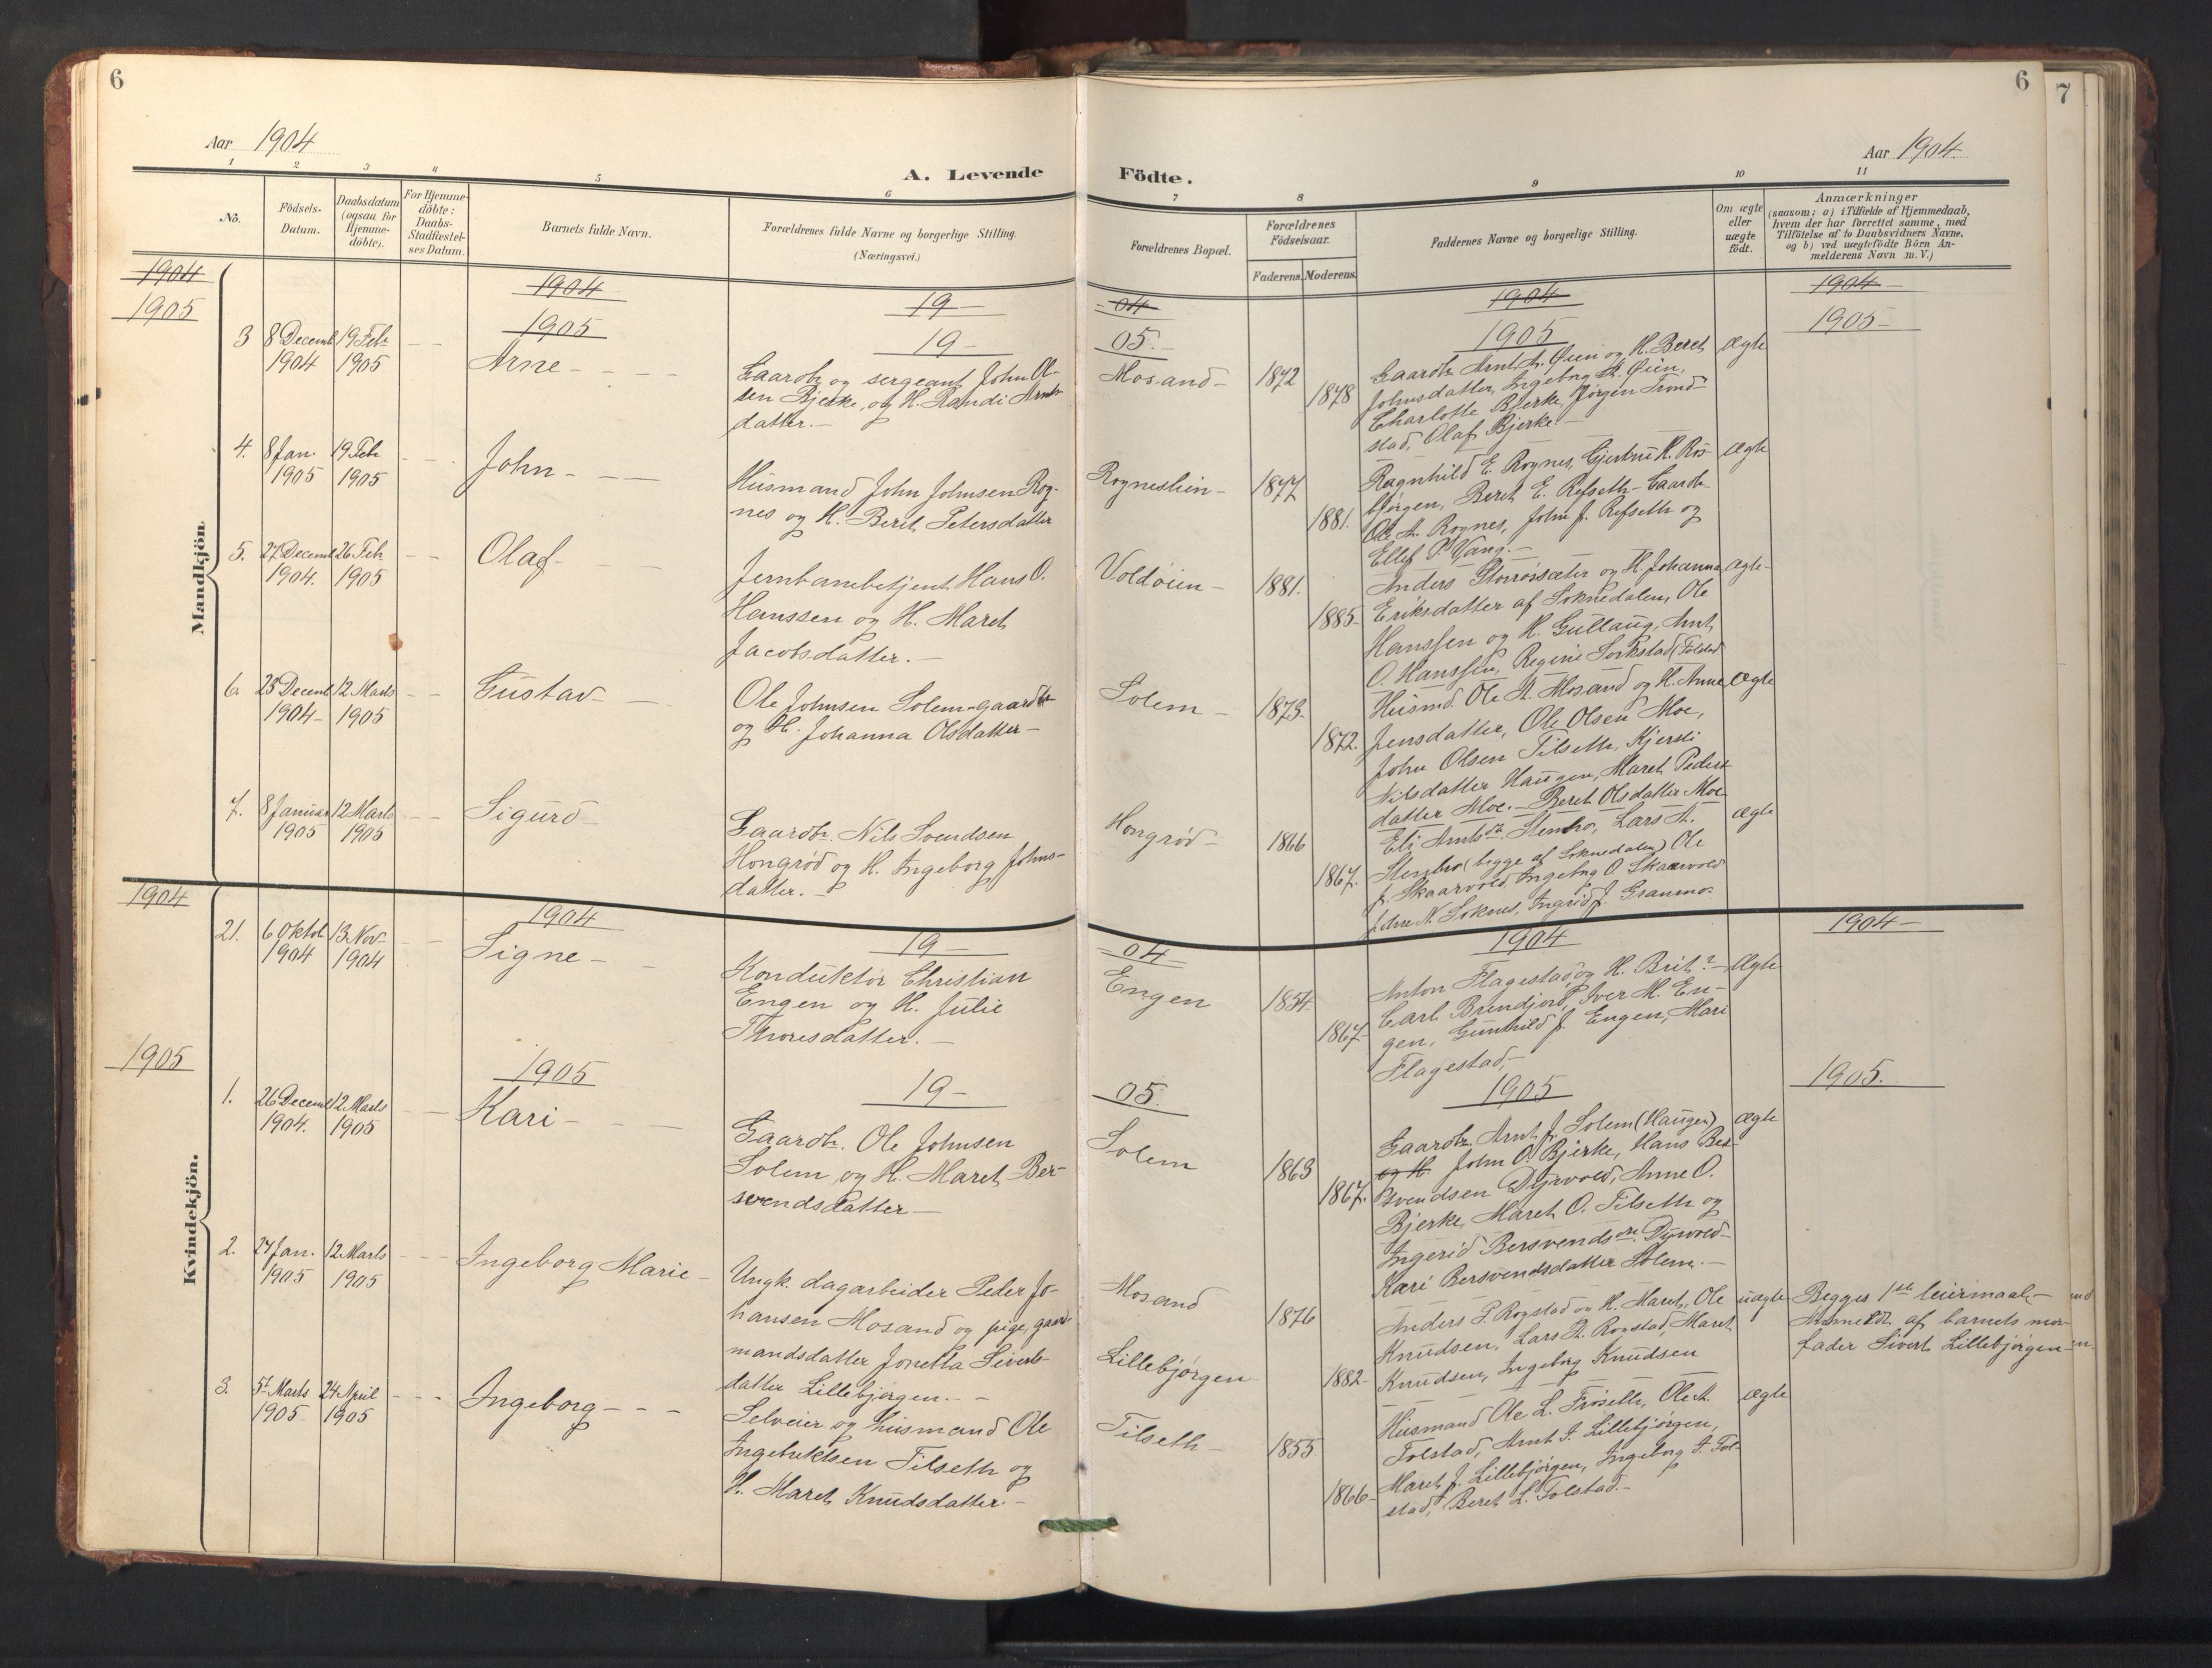 6
6
7
Aar 1904
Aar 1904.
A. Levende
Födte.
1
2
3
4
5
6
7
8
9
10
11
No.
Födsels-
Datum.
Daabsdatum
(ogsaa for
Hjemme-
döbte).
For Hjemme-
döbte:
Daabs-
Stadfæstel-
ses Datum.
Barnets fulde Navn.
Forældrenes fulde Navne og borgerlige Stilling.
(Næringsvei.)
Forældrenes Bopæl.
Forældrenes
Födselsaar.
Faderens.
Moderens.
Faddernes Navne og borgerlige Stilling.
Om ægte
eller
uægte
födt.
Anmærkninger
(saasom: a) i Tilfælde af Hjemmedaab,
hvem der har forrettet samme, med
Tilföielse af to Daabsvidners Navne,
og b) ved uægtefödte Börn An-
melderens Navn m. V.)
Mandkjön
1904
1904
19-
-04
1904
1904
1905
1905
19-
05.-
1905
1905-
3
8 Decemb
1904
19 Feb
1905
Arne
Gaardbr og sergeant John Ol-
sen Bjerke, og H. Randi Arnts-
datter.-
Mosand-
1872
1878
Gaardbr Arnt A. Øien og H. Beret
Johnsdatter, Ingebrg A. Øien,
Charlotte Bjerke, Jørgen Trond-
stad, Olaf Bjerke.-
Ægte
4.
8 Jan.
1905
19 Feb
1905
John-
Husmand John Johnsen Rog-
nes og H. Beret Petersdatter
Rogneslien-
1877
1881.
Ragnhild E. Rognes, Gjertru H. Ros-
bjørgen, Beret E. Refseth- Gaardbr
Ole A. Rognes, John J. Refseth og
Ellef P. Vang.-
Ægte
5.
27 Decemb
1904.
26 Feb
1905
Olaf-
Jernbanebetjent Hans O.
Hanssen og H. Maret
Jacobsdatter.-
Voldøien-
1881.
1885-
Anders Storrøsæter og H. Johanna
Eriksdatter af Soknedalen, Ole
Hanssen og H. Gullaug, Arnt
O. Hanssen, Regine Sorkstad
Ægte-
6.
25 Decemb
1904-
12 Marts
1905
Gustav-
Ole Johnsen Solem-gaardbr
og H. Johanna Olsdatter-
Solem-
1873-
1872.
Husmd. Ole A. Mosand og H. Anne
Jensdatter, Ole Olsen Moe,
John Olsen Tilseth, Kjersti
Nilsdatter Haugen, Maret Peders-
datter Moe.- Beret Olsdatter Moe
Ægte
7.
8 Januar
1905
12 Marts
1905
Sigurd-
Gaardbr. Nils Svendsen
Hongrød og H. Ingeborg Johns-
datter.-
Hongrød-
1866
1867.
Eli Arntsdr. Stenbro, Lars A.
Stenbro (begge af Soknedalen) Ole
J. Skaarvold, Ingebrg O. Skaarvold
John N. Soknes, Ingrid J. Granmo-
Ægte
Kvindekjön.
1904
1904
19-
04
1904
1904-
21.
6 Oktob
1904
13 Nov-
1904
Signe-
Konduktør Christian
Engen og H. Julie
Thoresdatter.-
Engen
1854-
1867-
Anton Flagestad og H. Brit?-
Carl Brendjord, Iver M. En-
gen, Gunhild J. Engen, Mari
Flagestad,-
Ægte
1905
1905
19-
05.
1905
1905.
1.
26 Decemb
1904.
12 Marts
1905
Kari-
Gaardbr. Ole Johnsen
Solem og H. Maret Ber-
svendsdatter-
Solem
1863
1867.
Gaardbr. Arnt J. Solem (Haugen)
og H John O. Bjerke, Hans Ber-
svendsen Dyrvold, Anne O.
Bjerke, Maret O. Tilseth og
Ingerid Bersvendsdtr. Dyrvold-
Kari Bersvendsdatter Solem.-
Ægte
2.
27 Jan.
1905
12 Marts
1905
Ingeborg Marie-
Ungk. dagarbeider Peder Jo-
hansen Mosand og pige, gaard-
mandsdatter Jonetta Siverts-
datter Lillebjørgen.-
Mosand
Lillebjørgen
1876
1882-
Anders P. Rogstad og H. Maret, Ole
Knudsen, Lars A. Rogstad, Maret
Knudsen, Ingeborg Knudsen
uægte
Begges 1ste leiermaal-
Anmeldt af barnets mor-
fader Sivert Lillebjørgen-
3.
5t Marts
1905
24 April
1905
Ingeborg-
Selveier og husmand Ole
Ingebrektsen Tilseth og
H. Maret Knudsdatter.-
Tilseth-
1855
1866-
Husmand Ole L. Frøseth, Ole A.
Folstad, Arnt S. Lillebjørgen,
Maret J. Lillebjørgen, Ingeborg A. Fol-
stad, Beret L. Folstad.-
Ægte